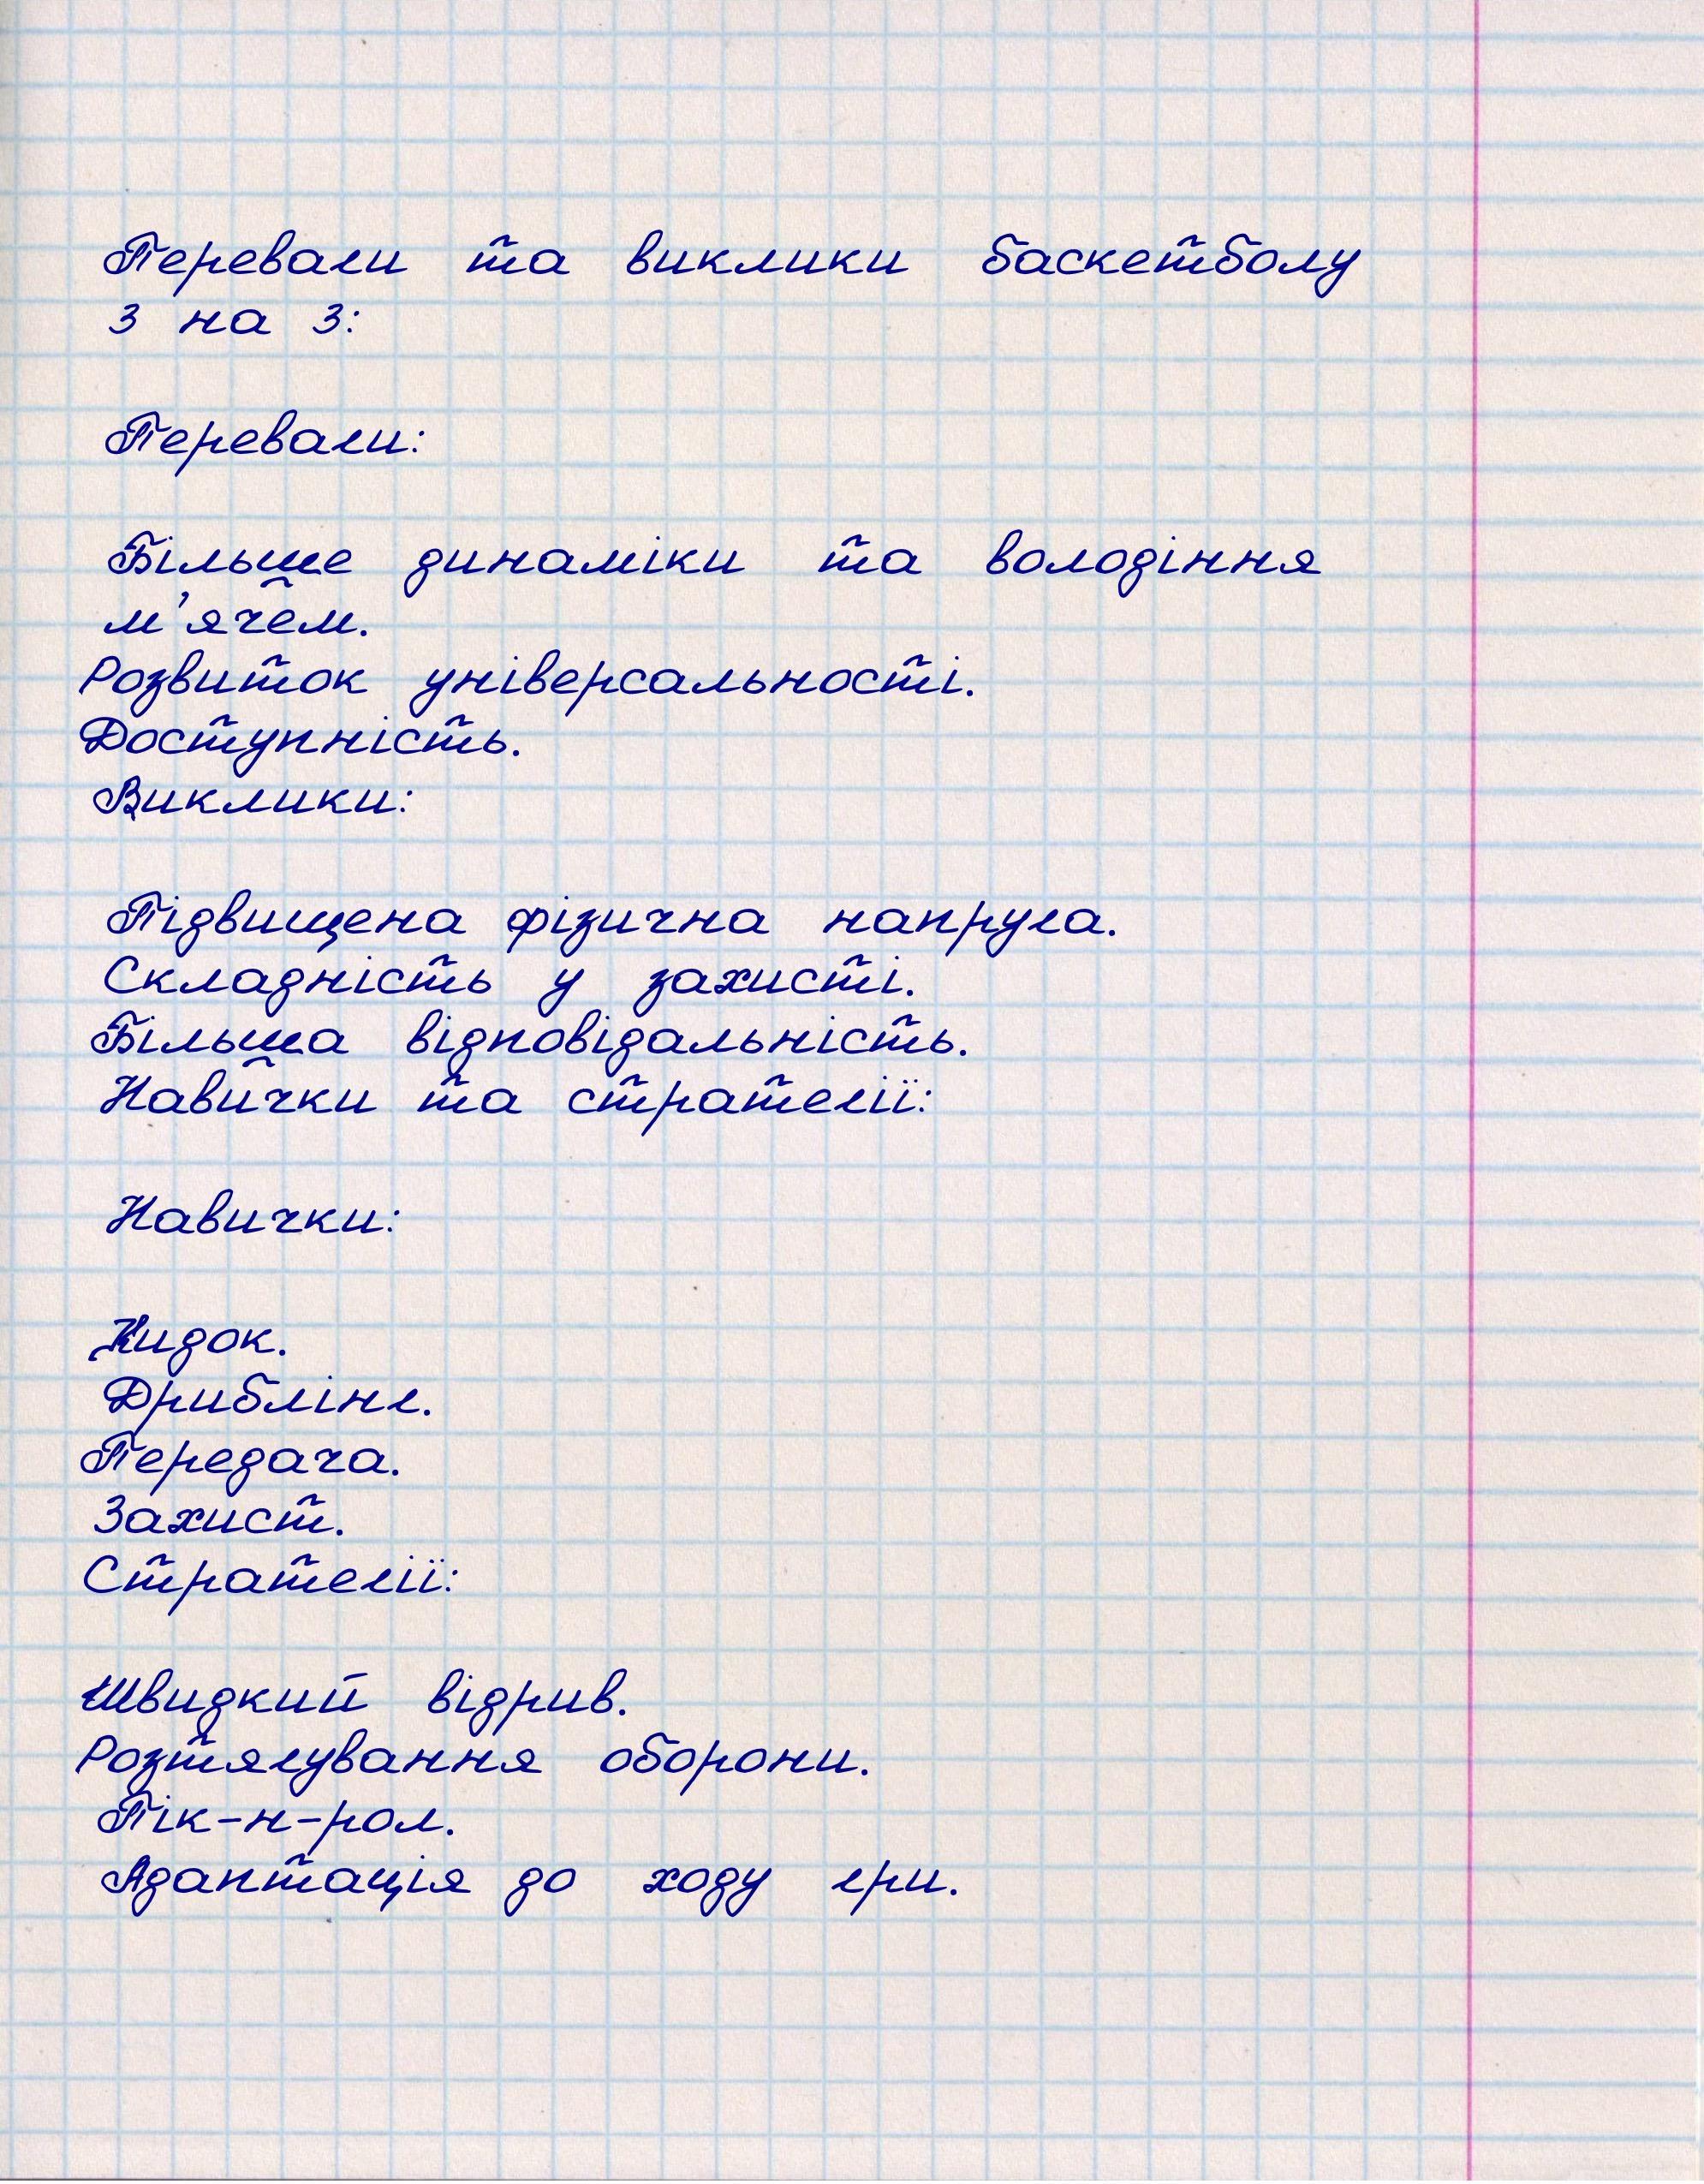 Переваги та виклики баскетболу
3 на 3:
Переваги:
Більше динаміки та володіння
м'ячем.
Розвиток універсальності.
Доступність.
Виклики:
Підвищена фізична напруга.
Складність у захисті.
Більша відповідальність.
Навички та стратегії:
Навички:
Кидок.
Дриблінг.
Передача.
Захист.
Стратегії:
Швидкий відрив.
Розтягування оборони.
Пік-н-рол.
Адаптація до ходу гри.